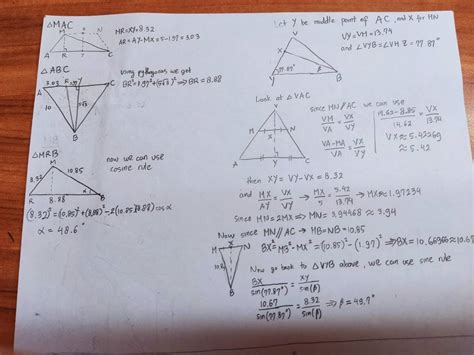 △MAC
M X N
A R Y C
MR=XY=8.32
AR=AY-MX=5-1.97=3.03
△ABC
3.03 R 1.97 Y
A C
10
5√3
B
Using pythagoras we get
BR²=1.97²+(5√3)² ⇒ BR=8.88
△MRB:
M
8.32 10.85
R 8.88 α B
now we can use
cosine rule
(8.32)²=(10.85)²+(8.88)²-2(10.85)(8.88)cosα
α=48.6°
Let Y be middle point of AC, and X for MN
VY=VM=13.74
and ∠VYB=∠VMZ=77.87°
V
X
77.87° β
Y B
Look at △VAC
V
M X N
A Y C
since MN//AC we can use
VM/VA = VX/VY
VA-MA/VA = VX/VY
14.62-8.85/14.62 = VX/13.74
VX≈5.42269
≈5.42
then XY=VY-VX=8.32
and MX/AY = VX/VY → MX/5 = 5.42/13.74 → MX≈1.97234
Since MN=2MX ⇒ MN=3.94468≈3.94
Now since MN//AC → MB=NB=10.85
M X N
B
BX²=MB²-MX²=(10.85)²-(1.97)² ⇒ BX=10.66966≈10.67
Now go back to △VYB above, we can use sine rule
BX/sin(77.87°) = XY/sin(β)
10.67/sin(77.87°) = 8.32/sin(β) ⇒ β=49.7°